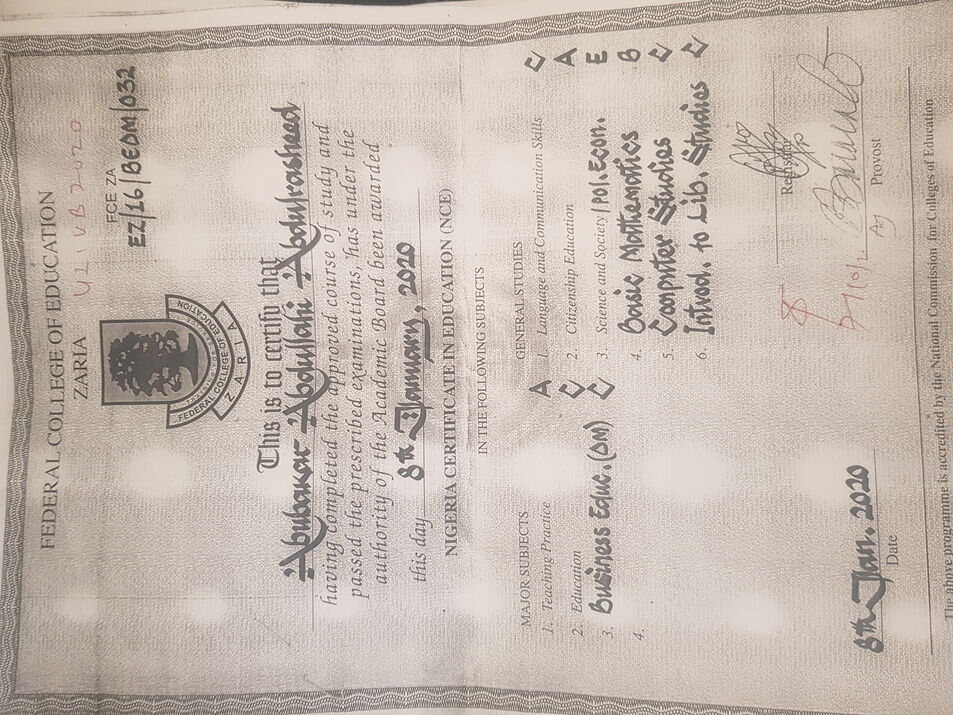 FEDERAL COLLEGE OF EDUCATION
ZARIA
FCE ZA
EZ/16/BEDM/032
FEDERAL COLLEGE OF EDUCATION
ZARIA
This is to certify that
Abubakar Abdullahi Abdulrasheed
having completed the approved course of study and
passed the prescribed examinations, has under the
authority of the Academic Board been awarded
this day 8th January, 2020
NIGERIA CERTIFICATE IN EDUCATION (NCE)
IN THE FOLLOWING SUBJECTS
MAJOR SUBJECTS
1. Teaching Practice A
2. Education C
3. Business Educ. (DM) C
4.
GENERAL STUDIES
1. Language and Communication Skills C
2. Citizenship Education A
3. Science and Society / Pol. Econ. E
4. Basic Mathematics B
5. Computer Studies C
6. Introd. to Lib. Studies C
8th Jan. 2020
Date
Registrar
Ag Provost
The above programme is accredited by the National Commission for Colleges of Education